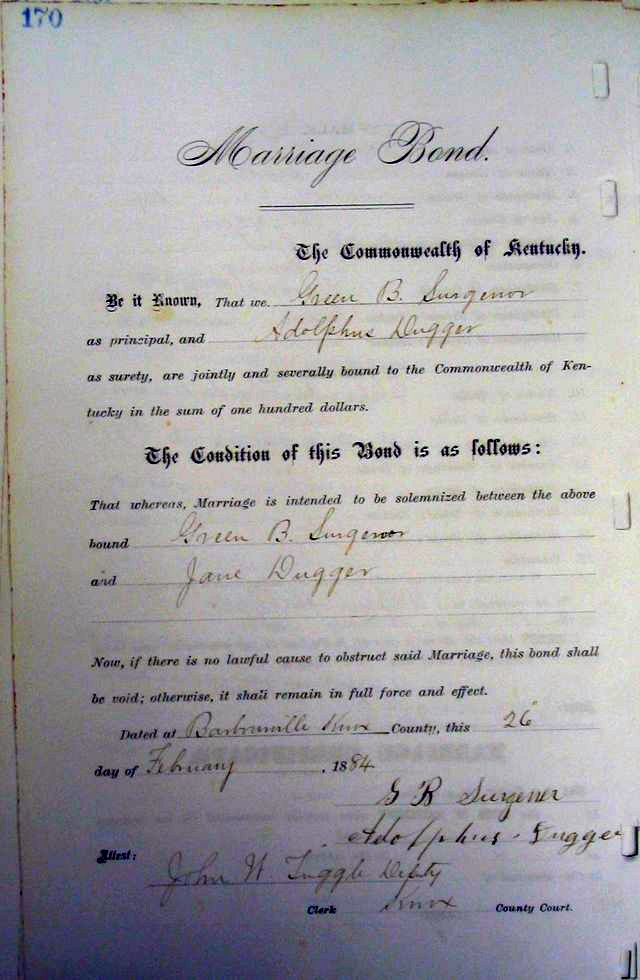 170
Marriage Bond.
The Commonwealth of Kentucky.
Be it Known, That we Green B. Surgenor
as principal, and Adolphus Dugger
as surety, are jointly and severally bound to the Commonwealth of Ken-
tucky in the sum of one hundred dollars.
The Condition of this Bond is as follows:
That whereas, Marriage is intended to be solemnized between the above
bound Green B. Surgenor
and Jane Dugger
Now, if there is no lawful cause to obstruct said Marriage, this bond shall
be void; otherwise, it shall remain in full force and effect.
Dated at Barbourville Knox County, this 26
day of February, 1884
G B Surgener
Adolphus Dugger
Attest:
John W. Tuggle Depty
Clerk Knox County Court.